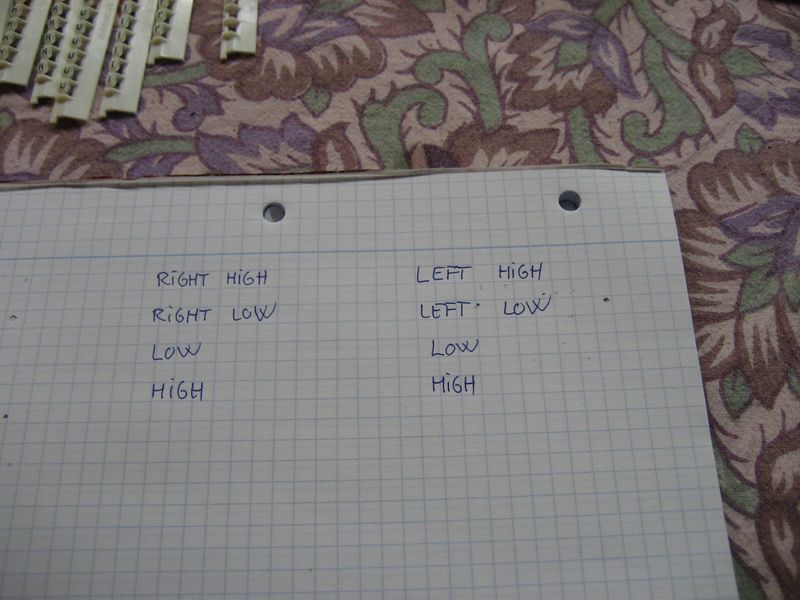 RiGHT HiGH
RiGHT LOW
LOW
HiGH
LEFT HiGH
LEFT LOW
LOW
HiGH